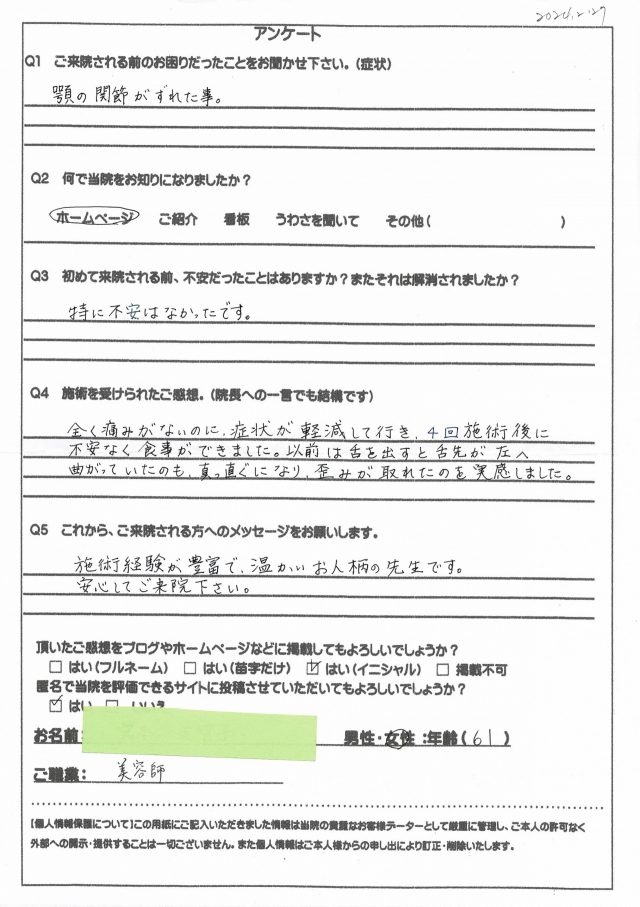 アンケート
Q1 ご来院される前のお困りだったことをお聞かせ下さい。(症状)
顎の関節がずれた事。
Q2 何で当院をお知りになりましたか?
ホームページ ご紹介 看板 うわさを聞いて その他( )
Q3 初めて来院される前、不安だったことはありますか?またそれは解消されましたか?
特に不安はなかったです。
Q4 施術を受けられたご感想。(院長への一言でも結構です)
全く痛みがないのに、症状が軽減して行き、4回施術後に
不安なく食事ができました。以前は舌を出すと舌先が左へ
曲がっていたのも、真っ直ぐになり、歪みが取れたのを実感しました。
Q5 これから、ご来院される方へのメッセージをお願いします。
施術経験が豊富で、温かいお人柄の先生です。
安心してご来院下さい。
頂いたご感想をブログやホームページなどに掲載してもよろしいでしょうか?
□ はい(フルネーム) □ はい(苗字だけ) ☑ はい(イニシャル) □ 掲載不可
匿名で当院を評価できるサイトに投稿させていただいてもよろしいでしょうか?
☑ はい □ いいえ
お名前: 男性・女性:年齢(61)
ご職業: 美容師
【個人情報保護について】この用紙にご記入いただきました情報は当院の貴重なお客様データーとして厳重に管理し、ご本人の許可なく
外部への開示・提供することは一切ございません。また個人情報はご本人様からの申し出により訂正・削除いたします。